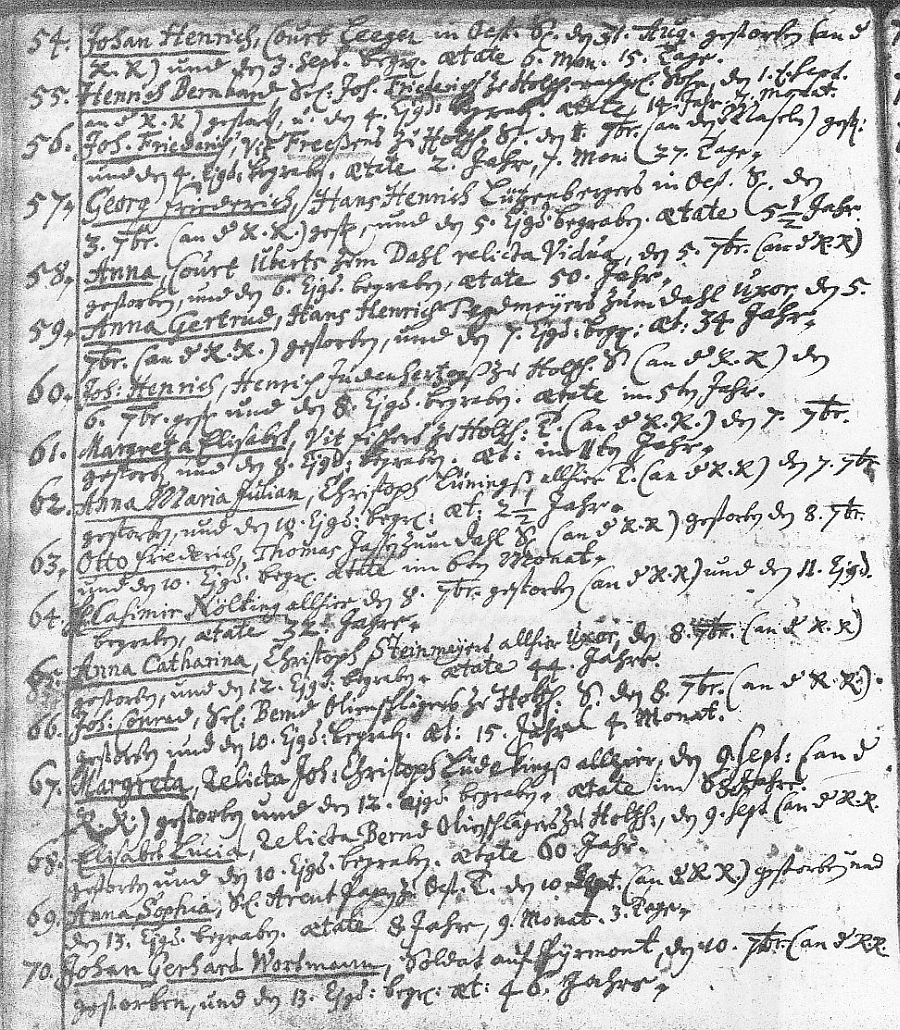 54. Johan Henrich, Court Leeger in Oest. S. den 31. Aug. gestorben (an d
R. R) und den 3. Sept. begr. ætate 6. Mon. 15. Tage.
55. Henrich Bernhard, Sel: Joh. Friederich zu Holth. Sohn, den 1. Sept.
an d R. R) gestorb, u. den 4. Ejgd: begrab. ætate 14 Jahr 7. Monat.
56. Joh. Friederich, Freesens zu Holth. S. den 7br. (an den Maseln) gest:
und den 4. Ejgd. begraben. ætate 2. Jahre, 7. Mon. 27. Tage.
57. Georg Friederich, Hans Henrich Lutzenbergers in Oest. S. den
3. 7br. (an d R. R) gest. und den 5. Ejgd. begraben. ætate 5 1/2 Jahr.
58. Anna, Court Uberts zum Dahl relicta Vidua, den 5. 7br. (an d R R)
gestorben, und den 6. Ejgd. begraben, ætate 50. Jahr.
59. Anna Gertrud, Hans Henrich Tegdmeyers zum Dahl Uxor, den 5.
7br. (an d R. R.) gestorben, und den 7. Ejgd: begr: æt: 34 Jahr.
60. Joh: Henrich, Henrich Judenhertzogs zu Holth. S. (an d R. R) den
6. 7br. gest. und den 8. Ejgd. begraben. ætate im 5ten Jahr.
61. Margreta Elisabeth, Vit Fischers zu Holth: T. (an d R. R.) den 7. 7br.
gestorb. und den 8. Ejgd: begraben. æt: im 11ten Jahr.
62. Anna Maria Julian, Christoph Lünings allhier T. (an d R. R) den 7. 7br
gestorben, und den 10. Ejgd: begr: æt: 2 1/2 Jahr.
63. Otto Friederich, Thomas zum Dahl S. (an d R. R) gestorben den 8. 7br.
und den 10. Ejgd. begr. ætate im 6ten Monat.
64. Nölting allhier den 8. 7br. gestorben (an d R. R) und den 11. Ejgd.
begraben, ætate 32. Jahre.
65. Anna Catharina, Christoph Steinmeyers allhier Uxor, den 8. 7br. (an d R. R)
gestorben, und den 12. Ejgd: begraben. ætate 44. Jahre.
66. Joh: Conrad, Sel: Bernd Olienschlägers zu Holth: S. den 8. 7br. (an d R. R.).
gestorben und den 10. Ejgd: begrab. æt: 15. Jahre 4. Monat.
67. Margreta, relicta Joh: Christoph Lüdekings allhier, den 9. Sept: (an d
R. R:) gestorben und den 12. Ejgd. begraben. ætate im Jahre.
68. Elisabet Lucia, relicta Bernd Olienschlägers zu Holth:, den 9. Sept (an d R. R.
gestorben und den 10. Ejgd. begraben. ætate 60 Jahr.
69. Anna Sophia, Sel. Arent zu Oest. T. den 10. Sept. (an d R. R.) gestorben und
den 13. Ejgd. begraben. ætate 8 Jahre, 9. Monat. 3. Tage.
70. Johan Gerhard Wortmann, Soldat auf Pyrmont, den 10. 7br. (an d R. R.
gestorben, und den 13. Ejgd: begr: æt: 46. Jahre.